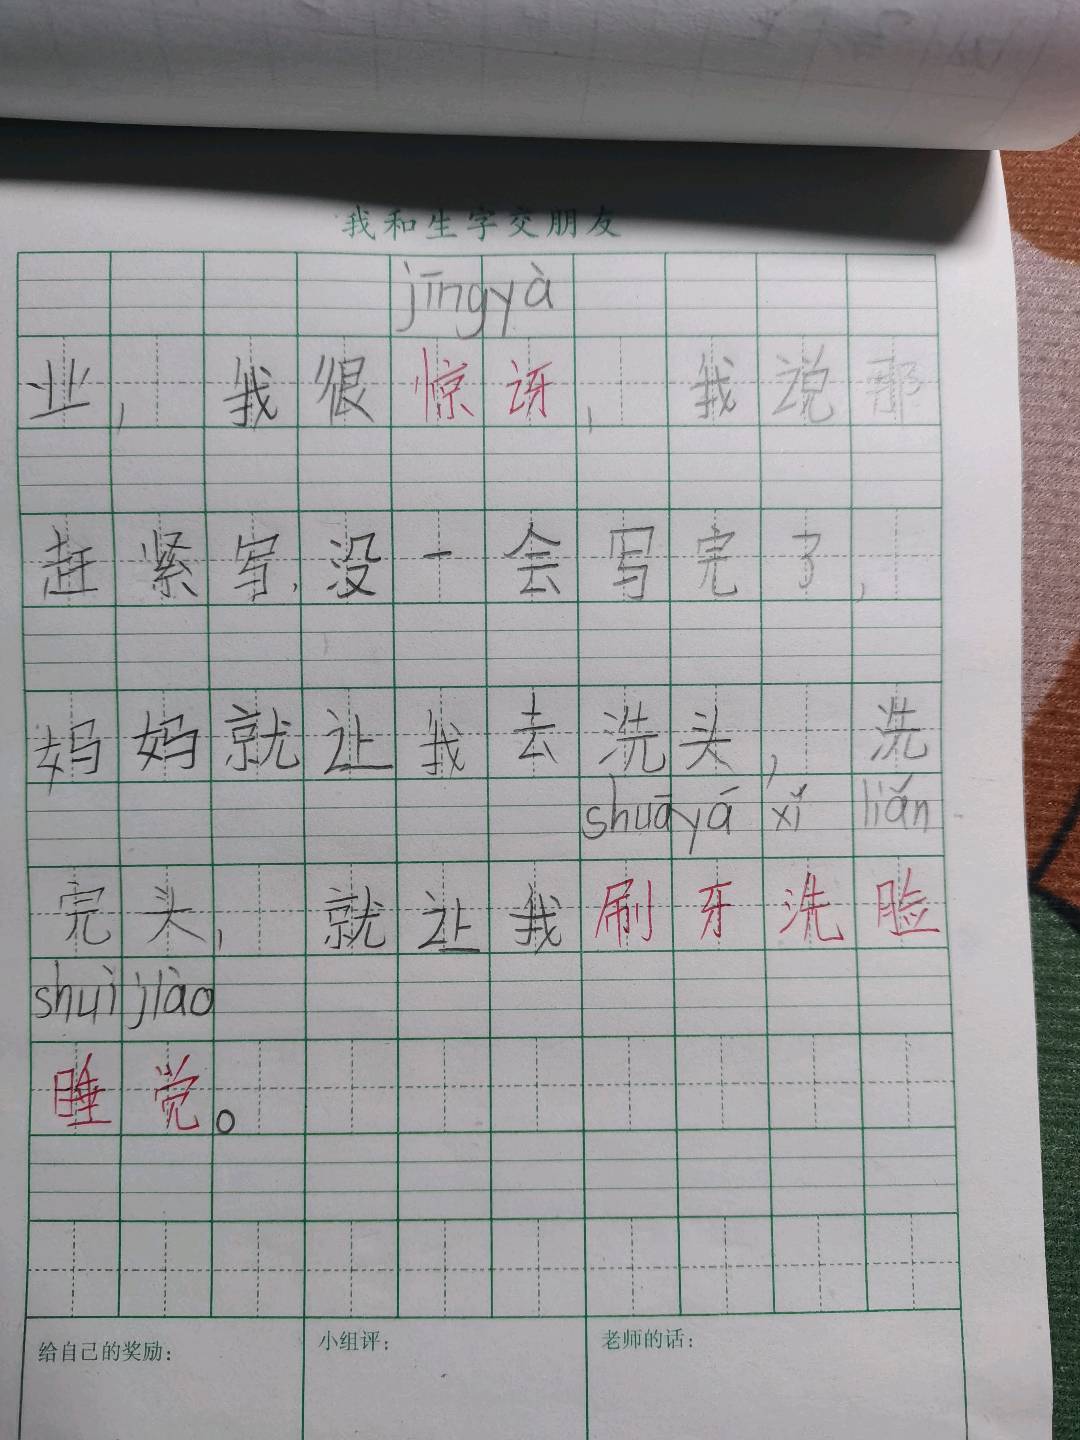 我和生字交朋友
jīngyà
业，我很惊讶，我说那
赶紧写，没一会写完了，
妈妈就让我去洗头，洗
shuāyá xǐ liǎn
完头，就让我刷牙洗脸
shuìjiào
睡觉。
给自己的奖励： 小组评： 老师的话：